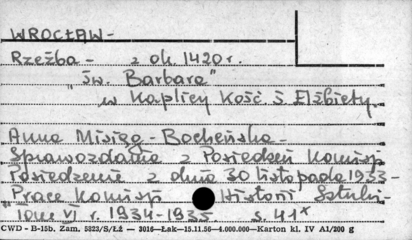 WROCŁAW-
Rzeźba - z ok 1420 r.
"Św. Barbara"
w Kaplicy Kość. Ś Elżbiety.
Anna Misiąg - Bocheńska -
Sprawozdania z Posiedzeń Komisji
Posiedzenie z dnia 30 listopada 1933-
"Prace Komisji Historii Sztuki-
"Tome VI r. 1934-1935 s. 41*
CWD - B-15b. Zam. 5823/S/Łż — 2016—Łak—15.11.50—4.000.000—Karton kl. IV A1/200 g